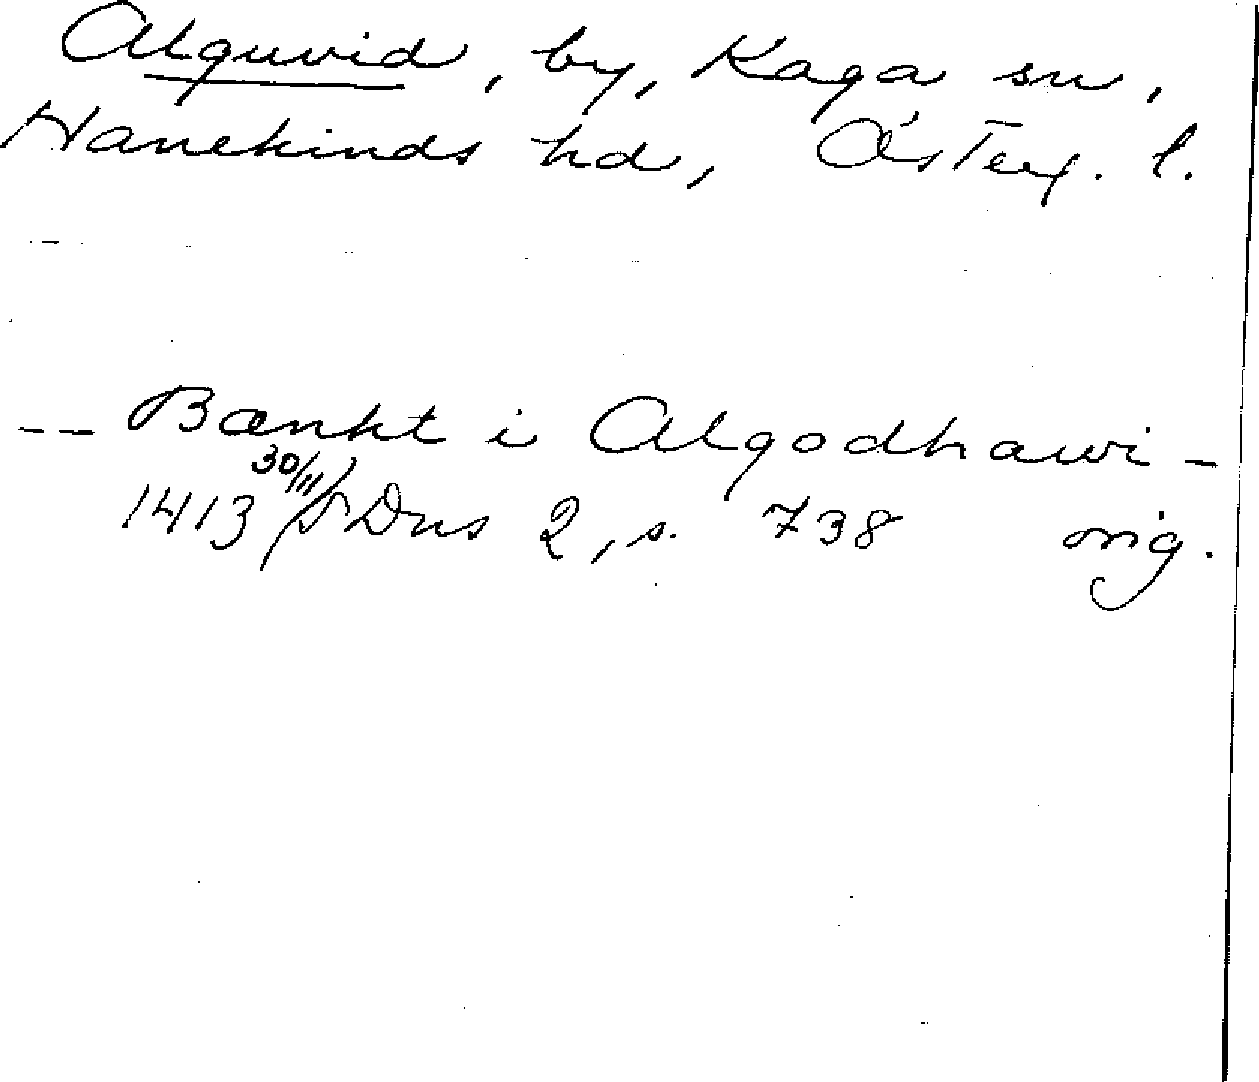 Alguvid, by, Kaga sn,
Hanekinds hd, Österg. l.
-- Bænkt i Algodhawi -
1413 30/11 SDns 2, s. 738 orig.